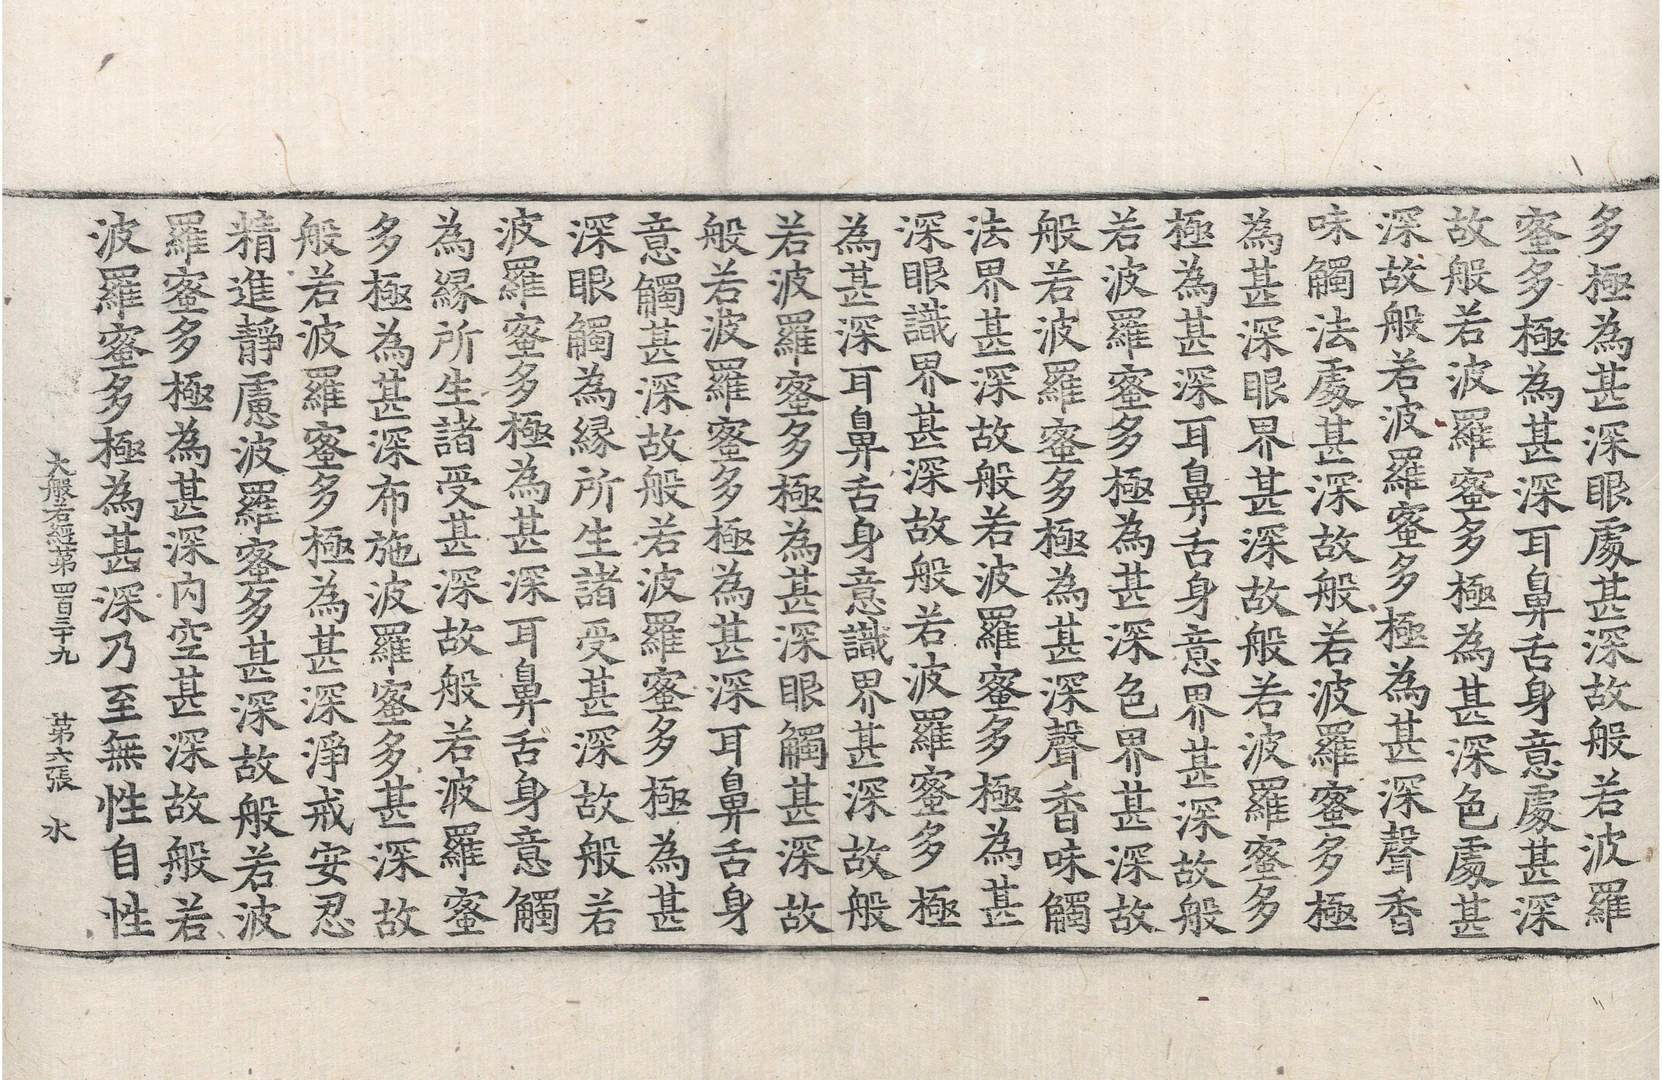 多極為甚深眼處甚深故般若波羅
蜜多極為甚深耳鼻舌身意處甚深
故般若波羅蜜多極為甚深色處甚
深故般若波羅蜜多極為甚深聲香
味觸法處甚深故般若波羅蜜多極
為甚深眼界甚深故般若波羅蜜多
極為甚深耳鼻舌身意界甚深故般
若波羅蜜多極為甚深色界甚深故
般若波羅蜜多極為甚深聲香味觸
法界甚深故般若波羅蜜多極為甚
深眼識界甚深故般若波羅蜜多極
為甚深耳鼻舌身意識界甚深故般
若波羅蜜多極為甚深眼觸甚深故
般若波羅蜜多極為甚深耳鼻舌身
意觸甚深故般若波羅蜜多極為甚
深眼觸為緣所生諸受甚深故般若
波羅蜜多極為甚深耳鼻舌身意觸
為緣所生諸受甚深故般若波羅蜜
多極為甚深布施波羅蜜多甚深故
般若波羅蜜多極為甚深淨戒安忍
精進靜慮波羅蜜多甚深故般若波
羅蜜多極為甚深內空甚深故般若
波羅蜜多極為甚深乃至無性自性
大般若經第四百三十九　第六張　水